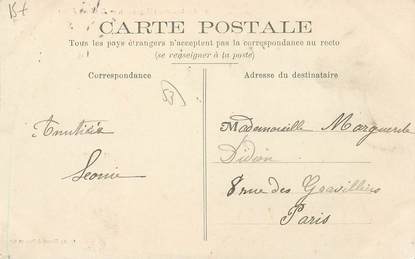 15+
CARTE POSTALE
Tous les pays étrangers n'acceptent pas la correspondance au recto
(se renseigner à la poste)
Correspondance
Adresse du destinataire
53
Amitiés
Leonie
Mademoiselle Marguerite
Didion
8 rue des Gravilliers
Paris